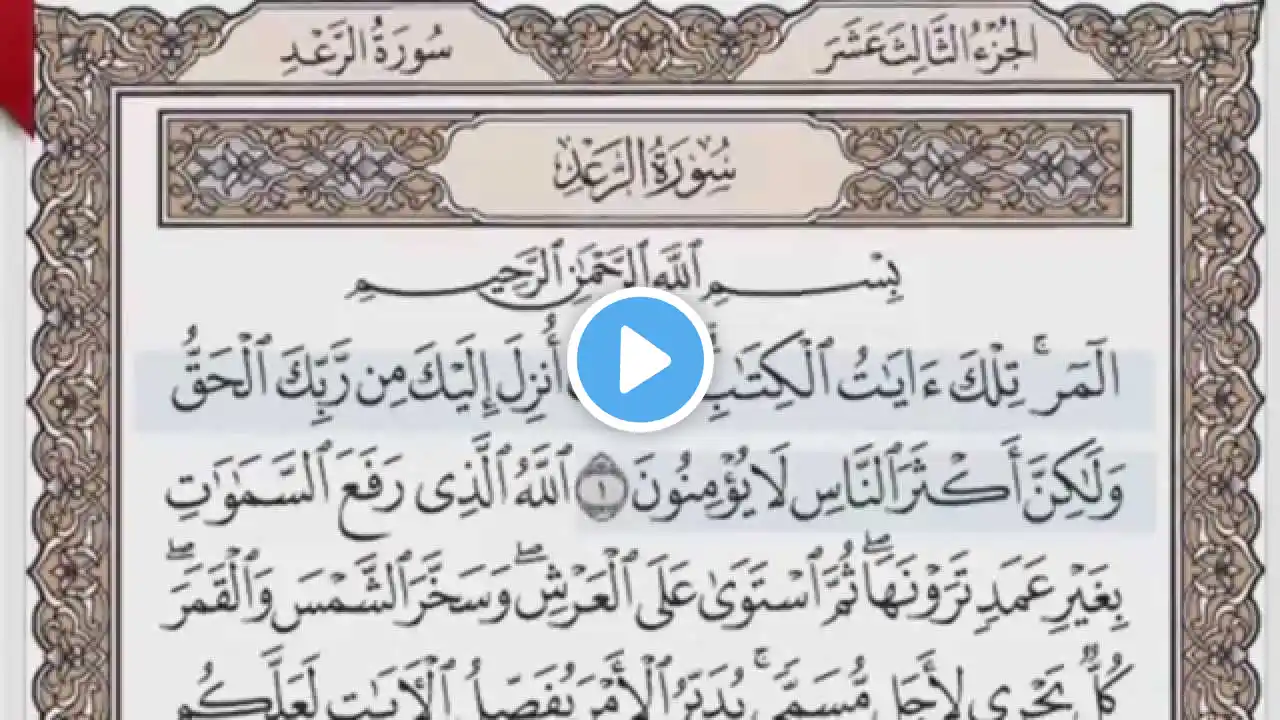 الجزء الثالث عشر
سورة الرعد
سُورَةُ الرَّعْدِ
بِسْمِ ٱللَّهِ ٱلرَّحْمَٰنِ ٱلرَّحِيمِ
الٓمٓرۚ تِلْكَ ءَايَٰتُ ٱلْكِتَٰبِ أُنزِلَ إِلَيْكَ مِن رَّبِّكَ ٱلْحَقُّ
وَلَٰكِنَّ أَكْثَرَ ٱلنَّاسِ لَا يُؤْمِنُونَ ١ ٱللَّهُ ٱلَّذِى رَفَعَ ٱلسَّمَٰوَٰتِ
بِغَيْرِ عَمَدٍ تَرَوْنَهَاۖ ثُمَّ ٱسْتَوَىٰ عَلَى ٱلْعَرْشِۖ وَسَخَّرَ ٱلشَّمْسَ وَٱلْقَمَرَۖ
كُلٌّ يَجْرِى لِأَجَلٍ مُّسَمًّىۚ يُدَبِّرُ ٱلْأَمْرَ يُفَصِّلُ ٱلْءَايَٰتِ لَعَلَّكُم